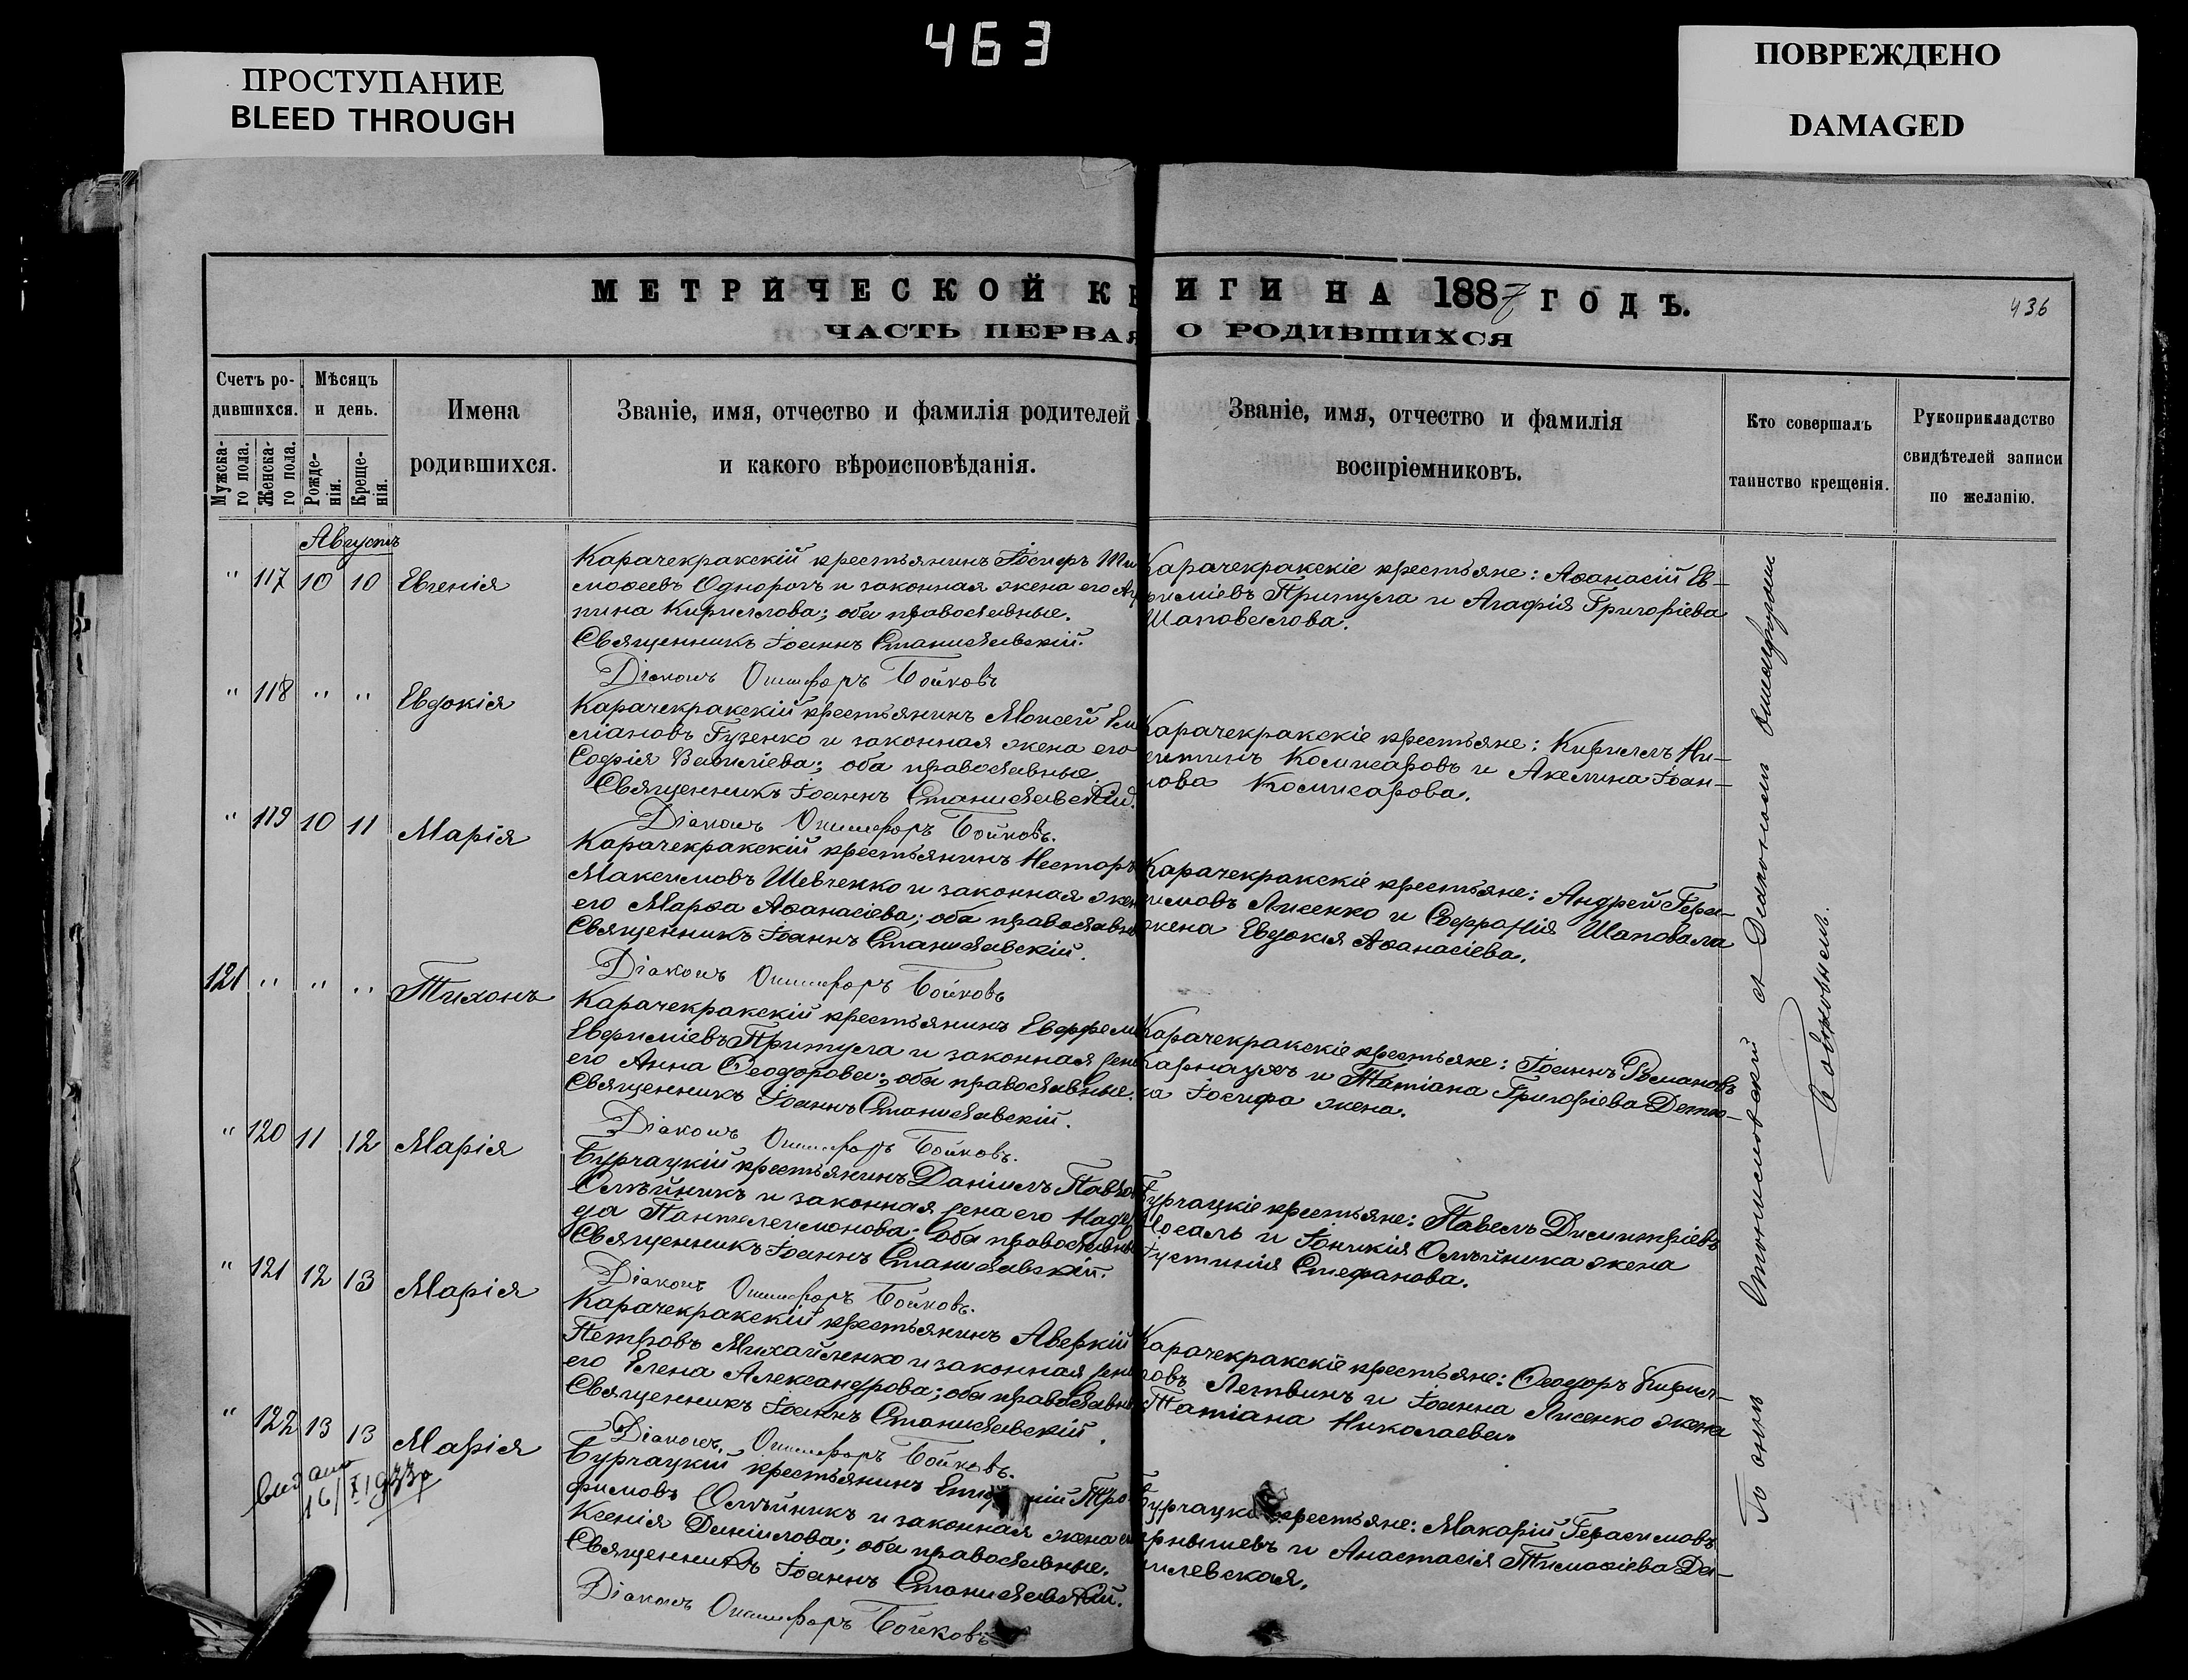 463
ПРОСТУПАНИЕ
BLEED THROUGH
ПОВРЕЖДЕНО
DAMAGED
МЕТРИЧЕСКОЙ КНИГИ НА 1887 ГОДЪ.
436
ЧАСТЬ ПЕРВАЯ О РОДИВШИХСЯ
Счетъ родившихся.
Мужскаго пола.
Женскаго пола.
Мѣсяцъ и день.
Рожденія.
Крещенія.
Имена родившихся.
Званіе, имя, отчество и фамилія родителей
и какого вѣроисповѣданія.
Званіе, имя, отчество и фамилія
воспріемниковъ.
Кто совершалъ
таинство крещенія.
Рукоприкладство
свидѣтелей записи
по желанію.
Августъ
" 117 10 10 Евгенія
Карачекракскій крестьянинъ Іосифъ Ти
моѳеевъ Однорогъ и законная жена его Аг
пина Кириллова; оба православные.
Священникъ Іоаннъ Станиславскій.
Діаконъ Онисифоръ Бойковъ
Карачекракскіе крестьяне: Аѳанасій Ев-
фиміевъ Притула и Агафія Григоріева
Шаповалова.
" 118 " " Евдокія
Карачекракскій крестьянинъ Моисей Еми
ліановъ Гузенко и законная жена его
Софія Василіева; оба православные.
Священникъ Іоаннъ Станиславскій.
Діаконъ Онисифоръ Бойковъ.
Карачекракскіе крестьяне: Кириллъ Ни-
китинъ Комисаровъ и Акелина Іоан-
нова Комисарова.
" 119 10 11 Марія
Карачекракскій крестьянинъ Несторъ
Максимовъ Шевченко и законная жен
его Марѳа Аѳанасіева; оба православн
Священникъ Іоаннъ Станиславскій.
Діаконъ Онисифоръ Бойковъ
Карачекракскіе крестьяне: Андрей Гера-
симовъ Лисенко и Шаповала
жена Евдокія Аѳанасіева.
121 " " " Тихонъ
Карачекракскій крестьянинъ
Евфиміевъ Притула и законная жена
его Анна Ѳеодорова; оба православные.
Священникъ Іоаннъ Станиславскій.
Діаконъ Онисифоръ Бойковъ.
Карачекракскіе крестьяне: Іоаннъ Романовъ
Карнаухъ и Татіана Григоріева
ка Іосифа жена.
" 120 11 12 Марія
Бурчацкій крестьянинъ Даніилъ Павло
Олѣйникъ и законная жена его Надеж
да Пантелеимонова; оба православны
Священникъ Іоаннъ Станиславскій.
Діаконъ Онисифоръ Бойковъ.
Бурчацкіе крестьяне: Павелъ Димитріевъ
Носаль и Іоникія Олѣйника жена
Іустинія Стефанова.
" 121 12 13 Марія
Карачекракскій крестьянинъ Аверкій
Петровъ Михайленко и законная жена
его Елена Александрова; оба православны
Священникъ Іоаннъ Станиславскій.
Діаконъ Онисифоръ Бойковъ.
Карачекракскіе крестьяне: Ѳеодоръ Кирил-
ловъ Летвинъ и Іоанна Лисенко жена
Татіана Николаева.
" 122 13 13 Марія
выдано
16/XI 933р
Бурчацкій крестьянинъ Тро
фимовъ Олѣйникъ и законная жена е
Ксенія Даніилова; оба православные.
Священникъ Іоаннъ Станиславскій.
Діаконъ Онисифоръ Бойковъ
Бурчацкіе крестьяне: Макарій Герасимовъ
и Анастасія Тимоѳіева Да-
нилевская.
Станиславскій съ Діакономъ Онисифоромъ
Бойковымъ.